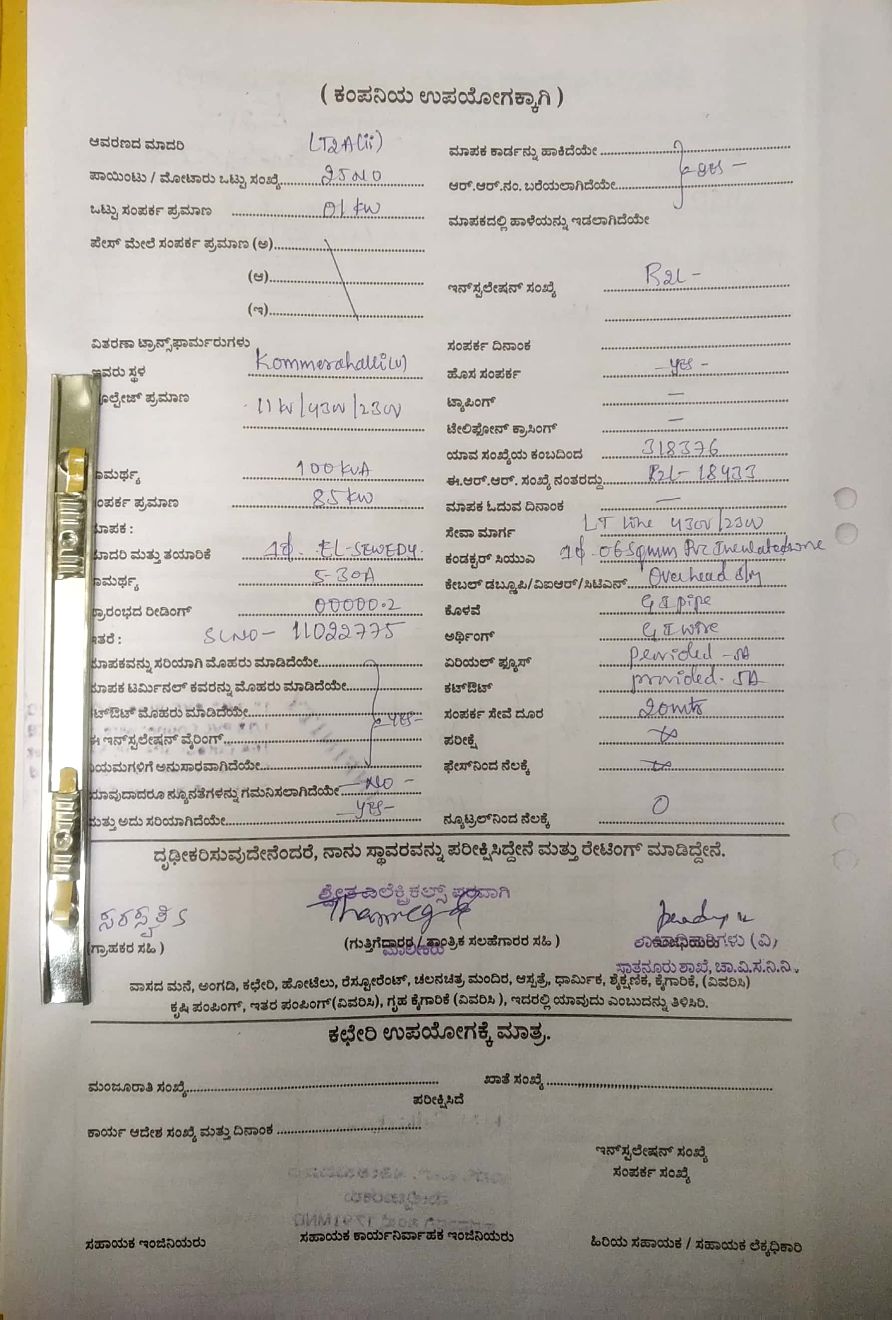 ( ಕಂಪನಿಯ ಉಪಯೋಗಕ್ಕಾಗಿ )
ಆವರಣದ ಮಾದರಿ LT2A(ii)
ಪಾಯಿಂಟು / ಮೋಟಾರು ಒಟ್ಟು ಸಂಖ್ಯೆ
ಒಟ್ಟು ಸಂಪರ್ಕ ಪ್ರಮಾಣ 01 KW
ಪೇಸ್ ಮೇಲೆ ಸಂಪರ್ಕ ಪ್ರಮಾಣ (ಅ)
(ಆ)
(ಇ)
ವಿತರಣಾ ಟ್ರಾನ್ಸ್‌ಫಾರ್ಮರುಗಳು
ಇವರು ಸ್ಥಳ
ೋಲ್ಟೇಜ್ ಪ್ರಮಾಣ
ಾಮರ್ಥ್ಯ 100 KVA
ಂಪರ್ಕ ಪ್ರಮಾಣ 85 KW
ಾಪಕ :
ಾದರಿ ಮತ್ತು ತಯಾರಿಕೆ 1ϕ. EL-SEWEDY.
ಾಮರ್ಥ್ಯ 5-30A
್ರಾರಂಭದ ರೀಡಿಂಗ್ 00000.2
ಇತರೆ : SLNO- 11022775
ಾಪಕವನ್ನು ಸರಿಯಾಗಿ ಮೊಹರು ಮಾಡಿದೆಯೇ
ಾಪಕ ಟರ್ಮಿನಲ್ ಕವರನ್ನು ಮೊಹರು ಮಾಡಿದೆಯೇ
ಟ್‌ಔಟ್ ಮೊಹರು ಮಾಡಿದೆಯೇ -yes-
ಈ ಇನ್‌ಸ್ಟಲೇಷನ್ ವೈರಿಂಗ್
ಿಯಮಗಳಿಗೆ ಅನುಸಾರವಾಗಿದೆಯೇ
ಯಾವುದಾದರೂ ನ್ಯೂನತೆಗಳನ್ನು ಗಮನಿಸಲಾಗಿದೆಯೇ -NO-
ಮತ್ತು ಅದು ಸರಿಯಾಗಿದೆಯೇ -yes-
ಮಾಪಕ ಕಾರ್ಡನ್ನು ಹಾಕಿದೆಯೇ
ಆರ್.ಆರ್.ನಂ. ಬರೆಯಲಾಗಿದೆಯೇ -yes-
ಮಾಪಕದಲ್ಲಿ ಹಾಳೆಯನ್ನು ಇಡಲಾಗಿದೆಯೇ
ಇನ್‌ಸ್ಟಲೇಷನ್ ಸಂಖ್ಯೆ
ಸಂಪರ್ಕ ದಿನಾಂಕ
ಹೊಸ ಸಂಪರ್ಕ -yes-
ಟ್ಯಾಪಿಂಗ್ —
ಟೇಲಿಫೋನ್ ಕ್ರಾಸಿಂಗ್ —
ಯಾವ ಸಂಖ್ಯೆಯ ಕಂಬದಿಂದ 318376
ಈ.ಆರ್.ಆರ್. ಸಂಖ್ಯೆ ನಂತರದ್ದು
ಮಾಪಕ ಓದುವ ದಿನಾಂಕ —
ಸೇವಾ ಮಾರ್ಗ LT line
ಕಂಡಕ್ಟರ್ ಸಿಯುಎ 1ϕ. 06 Sqmm Pvc
ಕೇಬಲ್ ಡಬ್ಲೂಪಿ/ವಿಐಆರ್/ಸಿಟಿಎಸ್ Overhead
ಕೊಳವೆ G I pipe
ಅರ್ಥಿಂಗ್ G I wire
ಏರಿಯಲ್ ಫ್ಯೂಸ್
ಕಟ್‌ಔಟ್ provided. 5A
ಸಂಪರ್ಕ ಸೇವೆ ದೂರ 20mts
ಪರೀಕ್ಷೆ
ಫೇಸ್‌ನಿಂದ ನೆಲಕ್ಕೆ
ನ್ಯೂಟ್ರಲ್‌ನಿಂದ ನೆಲಕ್ಕೆ 0
ದೃಢೀಕರಿಸುವುದೇನೆಂದರೆ, ನಾನು ಸ್ಥಾವರವನ್ನು ಪರೀಕ್ಷಿಸಿದ್ದೇನೆ ಮತ್ತು ರೇಟಿಂಗ್ ಮಾಡಿದ್ದೇನೆ.
ಎಲೆಕ್ಟ್ರಿಕಲ್ಸ್ ಪರವಾಗಿ
(ಗ್ರಾಹಕರ ಸಹಿ )
(ಗುತ್ತಿಗೆದಾರರ / ತಾಂತ್ರಿಕ ಸಲಹೆಗಾರರ ಸಹಿ )
ಮಾಲೀಕರು
ಸಾತನೂರು ಶಾಖೆ, ಚಾ.ವಿ.ಸ.ನಿ.ನಿ.,
ವಾಸದ ಮನೆ, ಅಂಗಡಿ, ಕಛೇರಿ, ಹೋಟೆಲು, ರೆಸ್ಟೋರೆಂಟ್, ಚಲನಚಿತ್ರ ಮಂದಿರ, ಆಸ್ಪತ್ರೆ, ಧಾರ್ಮಿಕ, ಶೈಕ್ಷಣಿಕ, ಕೈಗಾರಿಕೆ, (ವಿವರಿಸಿ)
ಕೃಷಿ ಪಂಪಿಂಗ್, ಇತರ ಪಂಪಿಂಗ್(ವಿವರಿಸಿ), ಗೃಹ ಕೈಗಾರಿಕೆ (ವಿವರಿಸಿ ), ಇದರಲ್ಲಿ ಯಾವುದು ಎಂಬುದನ್ನು ತಿಳಿಸಿರಿ.
ಕಛೇರಿ ಉಪಯೋಗಕ್ಕೆ ಮಾತ್ರ.
ಮಂಜೂರಾತಿ ಸಂಖ್ಯೆ ಖಾತೆ ಸಂಖ್ಯೆ
ಪರೀಕ್ಷಿಸಿದೆ
ಕಾರ್ಯ ಆದೇಶ ಸಂಖ್ಯೆ ಮತ್ತು ದಿನಾಂಕ
ಇನ್‌ಸ್ಟಲೇಷನ್ ಸಂಖ್ಯೆ
ಸಂಪರ್ಕ ಸಂಖ್ಯೆ
ಸಹಾಯಕ ಇಂಜಿನಿಯರು ಸಹಾಯಕ ಕಾರ್ಯನಿರ್ವಾಹಕ ಇಂಜಿನಿಯರು ಹಿರಿಯ ಸಹಾಯಕ / ಸಹಾಯಕ ಲೆಕ್ಕಧಿಕಾರಿ